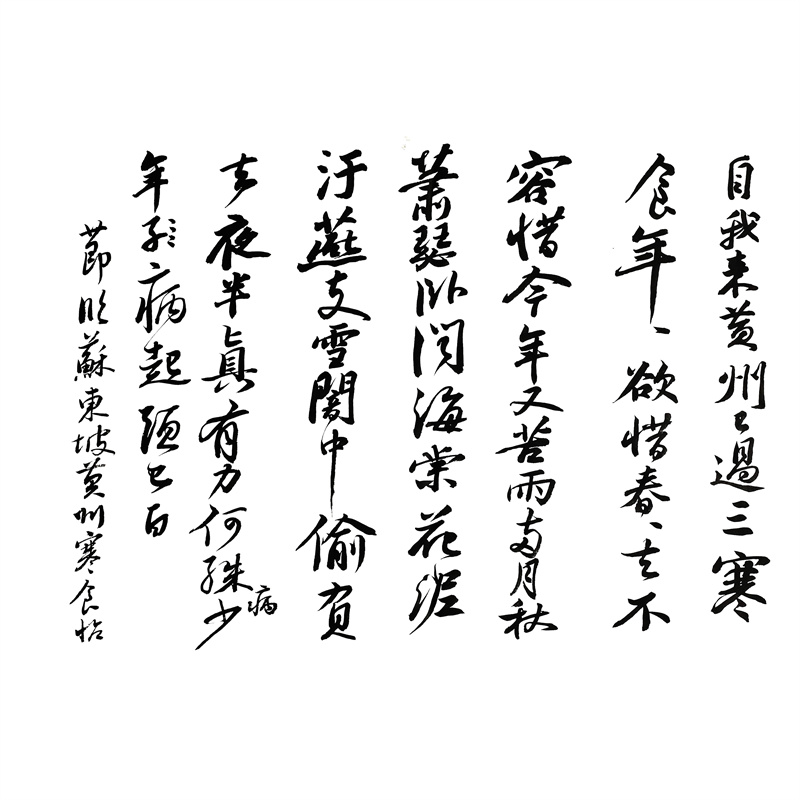 自我来黄州已過三寒
食年、欲惜春、去不
容惜今年又苦雨兩月秋
蕭瑟卧闻海棠花泥
汙燕支雪闇中偷負
去夜半真有力何殊少
病
年子病起頭已白
節临蘇東坡黄州寒食帖